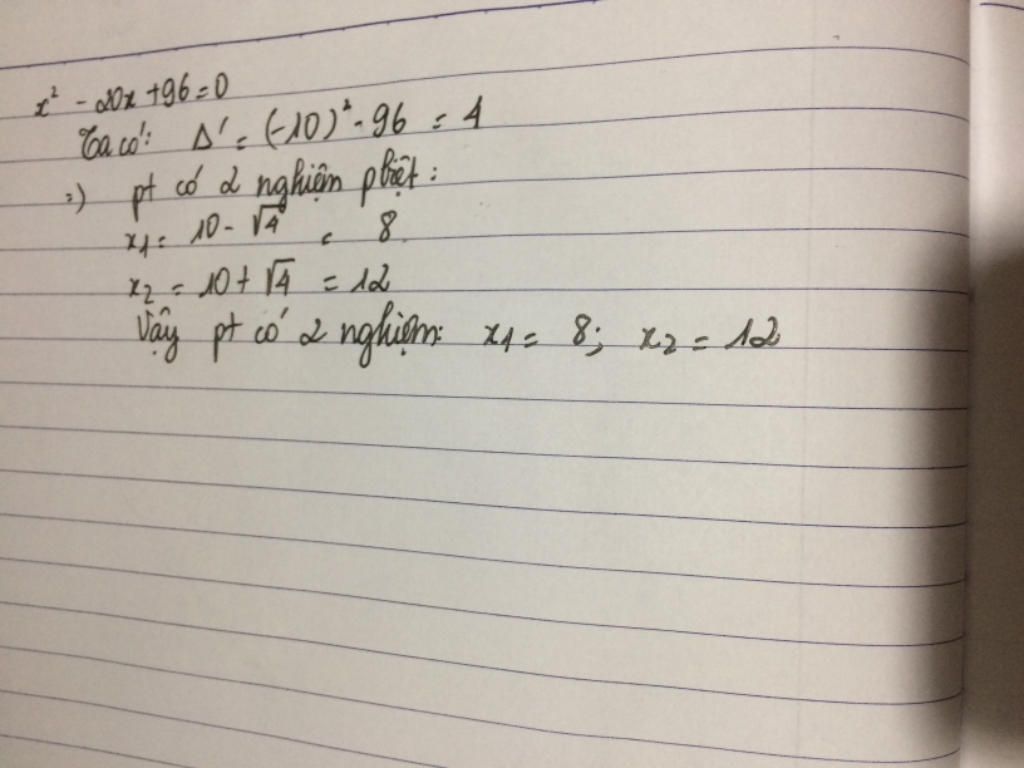 x² - 20x + 96 = 0
Ta có: Δ' = (-10)² - 96 = 4
=) pt có 2 nghiệm pbiệt:
x₁ = 10 - √4 = 8.
x₂ = 10 + √4 = 12
Vậy pt có 2 nghiệm: x₁ = 8; x₂ = 12